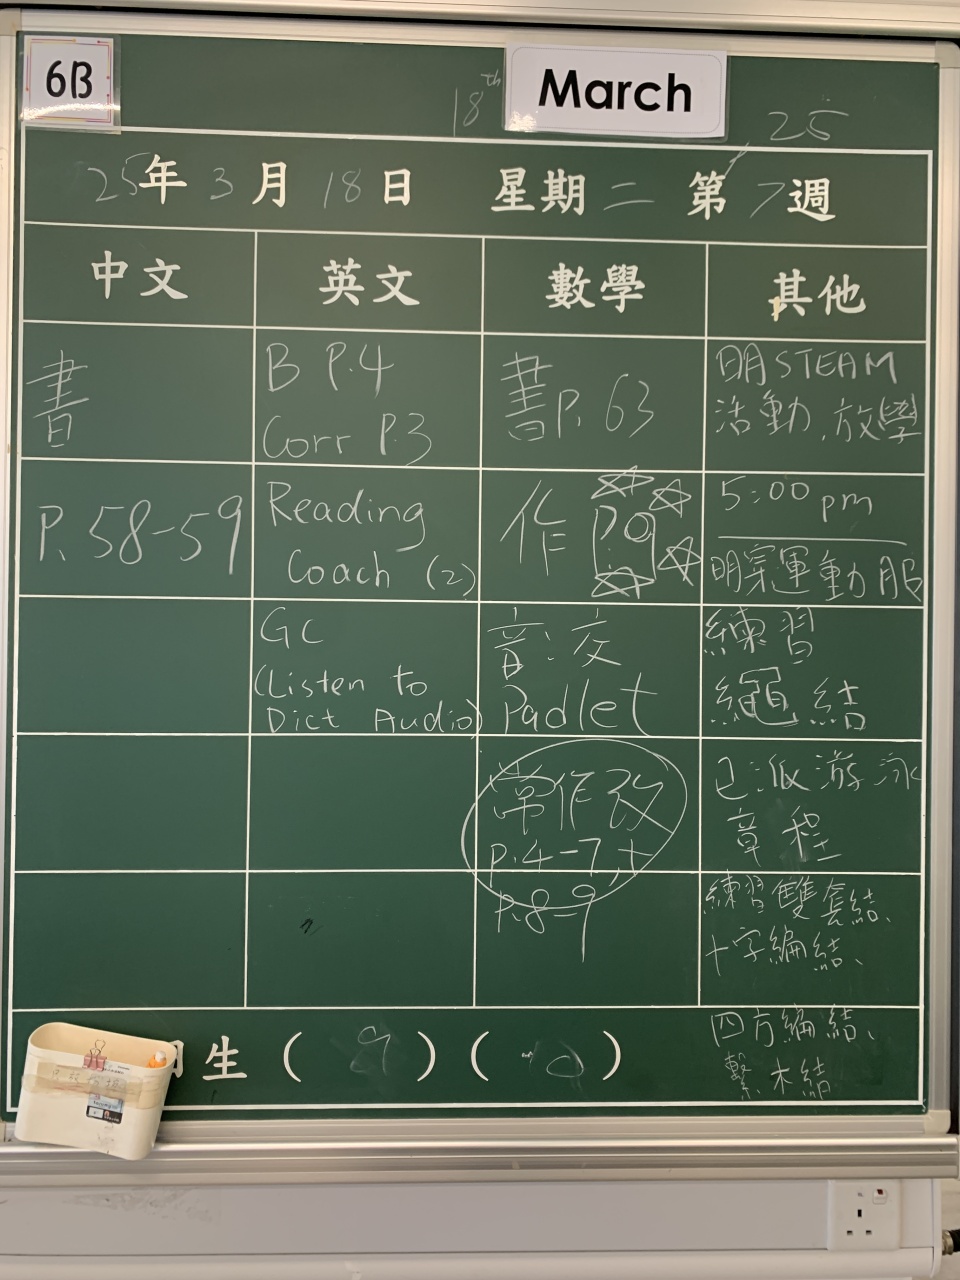 6B
18th March 25
25年3月18日 星期二 第7週
中文 英文 數學 其他
書
P. 58-59
B P.4
Corr P.3
Reading
Coach (2)
GC
(Listen to
Dict Audio)
書P. 63
作 P.9
音:交
Padlet
常作改
P.4-7, +
P.8-9
明STEAM
活動,放學
5:00 pm
明穿運動服
練習
繩結
已派游泳
章程
練習雙套結、
十字編結、
四方編結、
繫木結
生 ( 9 ) ( 0 )